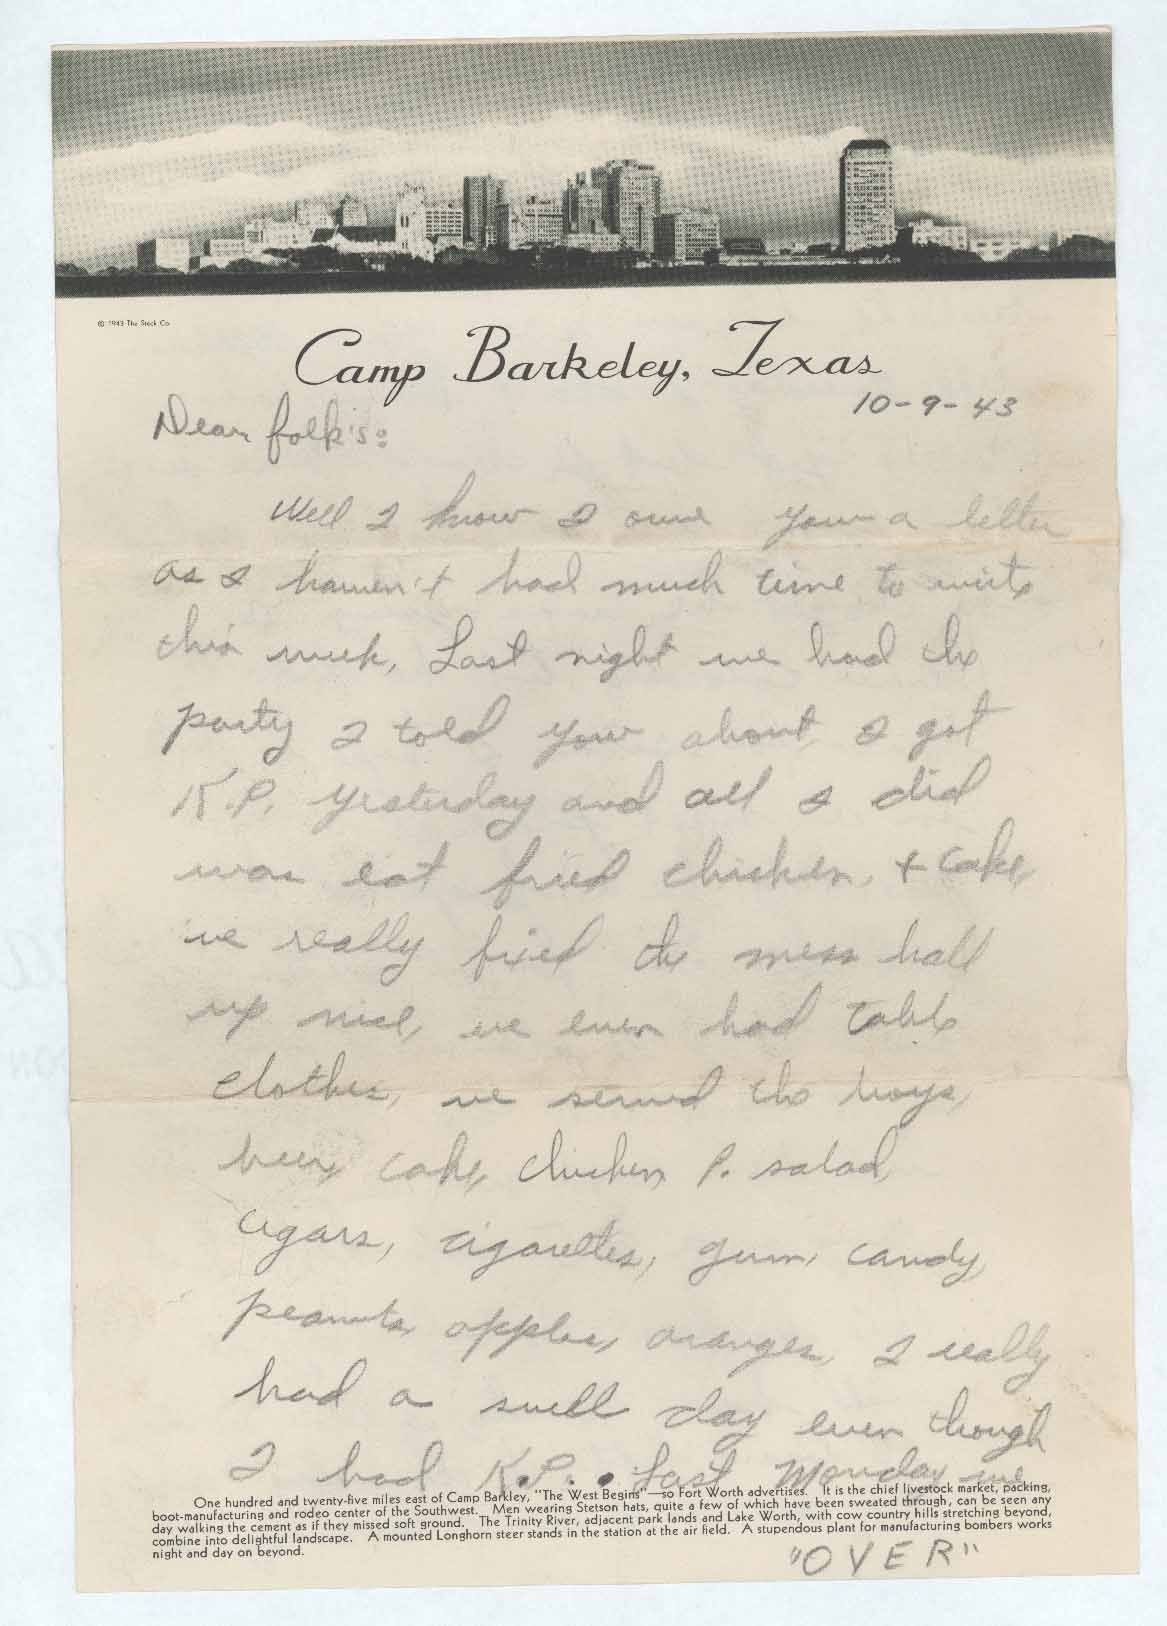 © 1943 The Steck Co
Camp Barkeley, Texas
10-9-43
Dear folk's:
Well I know I owe you a letter
as I haven't had much time to write
this week, Last night we had the
party I told you about, I got
K.P. yesterday and all I did
was eat fried chicken, + cake,
we really fixed the mess hall
up nice, we even had table
clothes, we served the boys,
beer, cake, chicken, P. salad,
cigars, cigarettes, gum, candy,
peanuts, apples, oranges, I really
had a swell day even though
I had K.P. . Last Monday we
One hundred and twenty-five miles east of Camp Barkley, "The West Begins"—so Fort Worth advertises. It is the chief livestock market, packing,
boot-manufacturing and rodeo center of the Southwest. Men wearing Stetson hats, quite a few of which have been sweated through, can be seen any
day walking the cement as if they missed soft ground. The Trinity River, adjacent park lands and Lake Worth, with cow country hills stretching beyond,
combine into delightful landscape. A mounted Longhorn steer stands in the station at the air field. A stupendous plant for manufacturing bombers works
night and day on beyond.
"OVER"